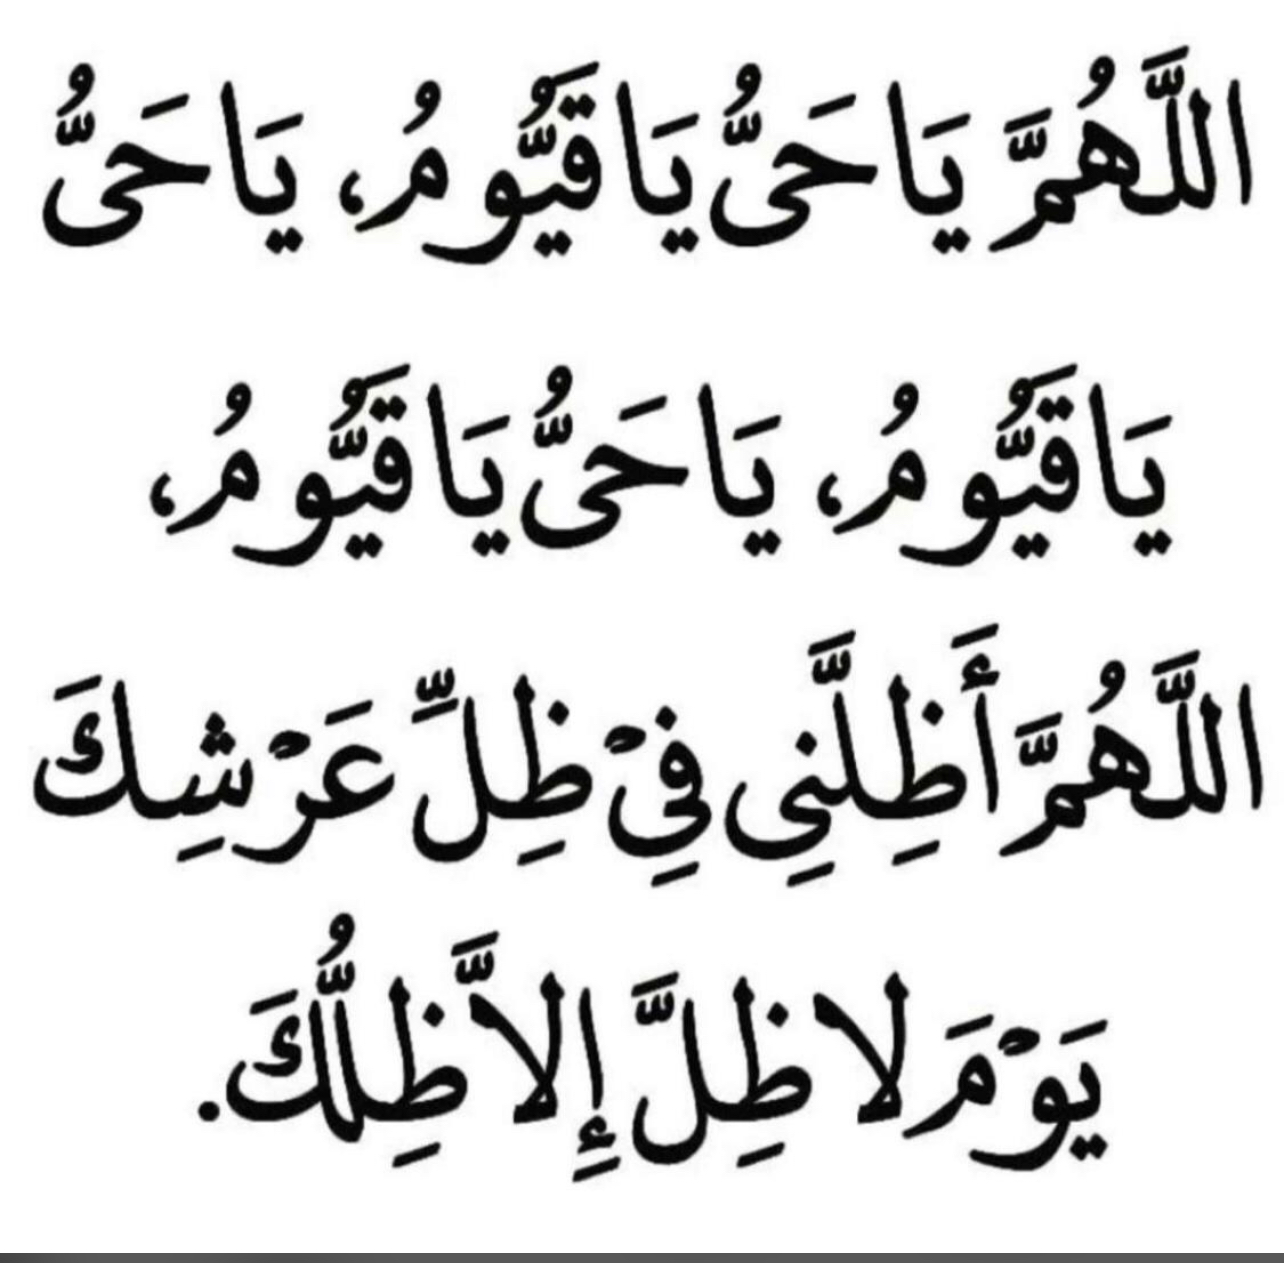 اللَّهُمَّ يَا حَىُّ يَا قَيُّومُ، يَا حَىُّ
يَا قَيُّومُ، يَا حَىُّ يَا قَيُّومُ،
اللَّهُمَّ أَظِلَّنِى فِىْ ظِلِّ عَرْشِكَ
يَوْمَ لا ظِلَّ إِلاَّ ظِلُّكَ.